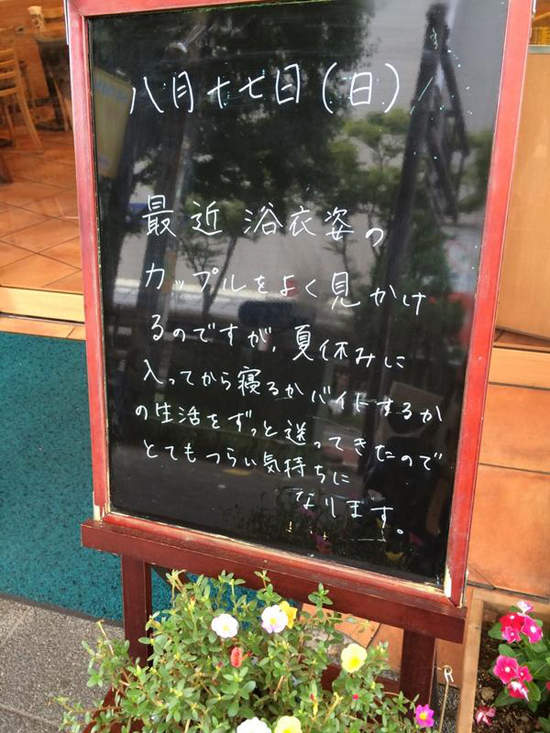 八月十七日(日)
最近浴衣姿の
カップルをよく見かけ
るのですが、夏休みに
入ってから寝るかバイトするか
の生活をずっと送ってきたので
とてもつらい気持ちに
なります。